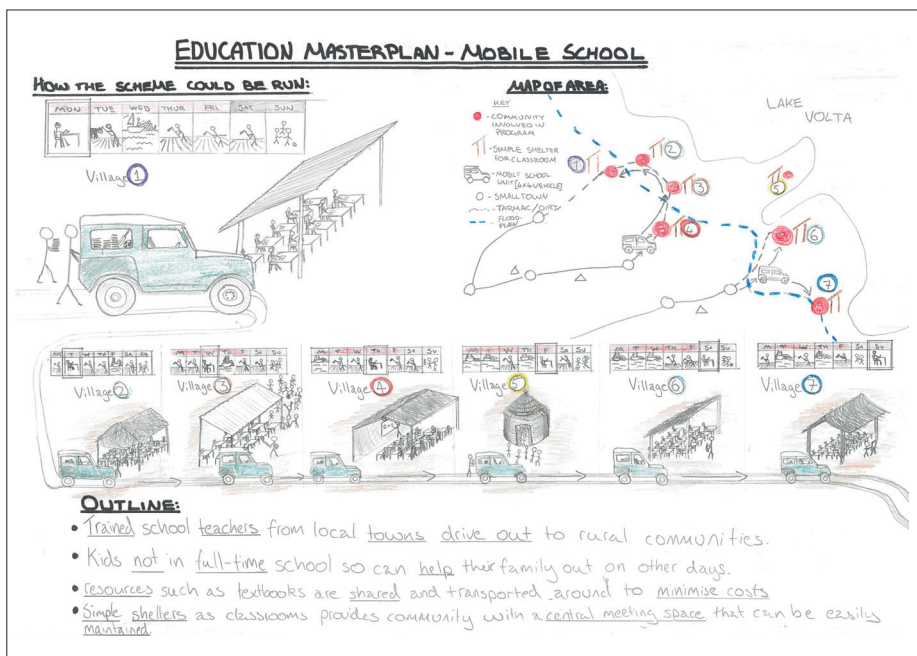 EDUCATION MASTERPLAN - MOBILE SCHOOL
HOW THE SCHEME COULD BE RUN:
MON TUE WED THUR FRI SAT SUN
Village 1
MAP OF AREA:
KEY
- COMMUNITY INVOLVED IN PROGRAM
- SIMPLE SHELTER FOR CLASSROOM
- MOBILE SCHOOL UNIT [4x4 VEHICLE]
- SMALL TOWN
- TARMAC/DIRT
- FLOOD-PLAIN
LAKE VOLTA
1
2
3
4
5
6
7
M T W TH F SA SU
Village 2
M T W TH F SA SU
Village 3
M T W TH F SA SU
Village 4
M T W TH F SA SU
Village 5
M T W TH F SA SU
Village 6
M T W TH F SA SU
Village 7
OUTLINE:
• Trained school teachers from local towns drive out to rural communities.
• Kids not in full-time school so can help their family out on other days.
• resources such as textbooks are shared and transported around to minimise costs
• Simple shelters as classrooms provides community with a central meeting space that can be easily
maintained.